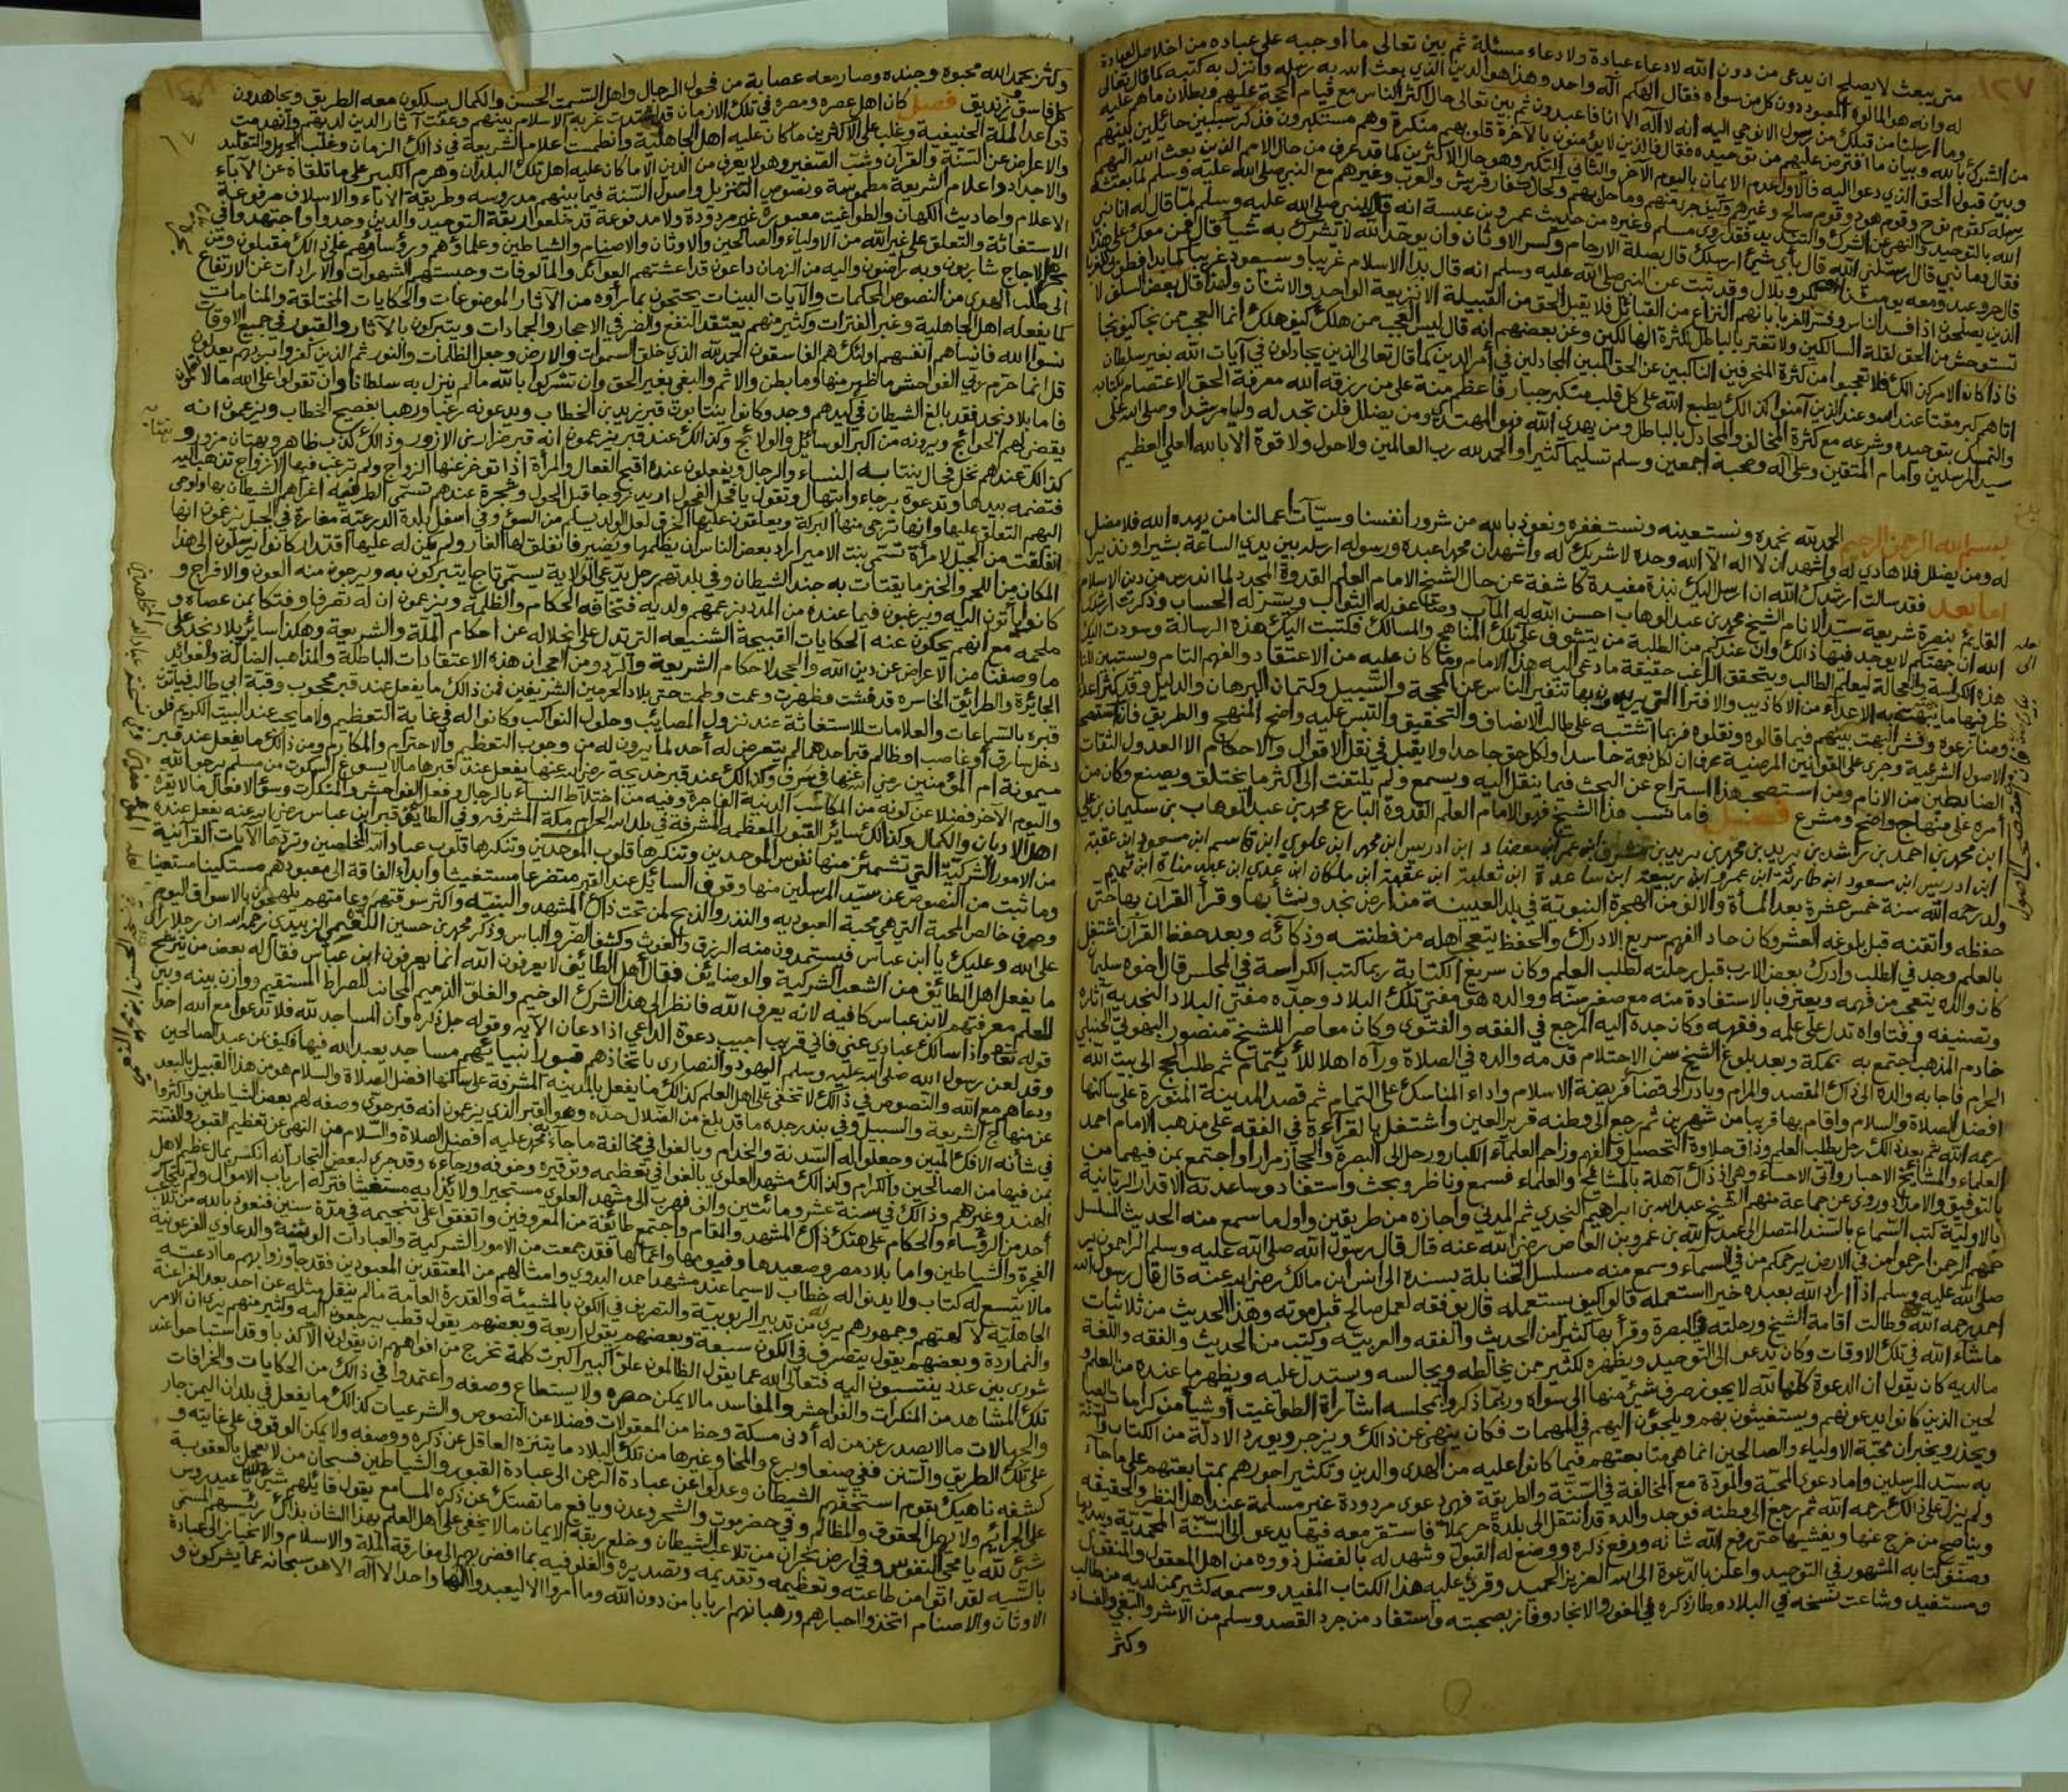 ١٢٧
متى يبعث لا يصلح ان يدعى من دون الله لا دعاء عبادة ولا دعاء مسئلة ثم بين تعالى ما اوجبه على عباده من اخلاص العبادة
له وانه هو المالوه المعبود دون كل من سواه فقال الهكم اله واحد وهذا هو الدين الذي بعث الله به رسله وانزل به كتبه كما قال تعالى
وما ارسلنا من قبلك من رسول الا نوحي اليه انه لا اله الا انا فاعبدون ثم بين تعالى حال اكثر الناس مع قيام الحجة عليهم وبطلان ما هم عليه
من الشرك بالله وبيان ما افترض عليهم من توحيده فقال فالذين لا يؤمنون بالاخرة قلوبهم منكرة وهم مستكبرون فذكر سببين حائلين بينهم
وبين قبول الحق الذي دعوا اليه فالاول عدم الايمان باليوم الآخر والثاني التكبر وهو حال الاكثرين كما قد عرف من حال الامم الذين بعث الله اليهم
رسله كقوم نوح وقوم هود وقوم صالح وغيرهم وكيف جرى منهم وما حل بهم وكحال كفار قريش والعرب وغيرهم مع النبي صلى الله عليه وسلم لما بعثه
الله بالتوحيد والنهي عن الشرك والتنديد فقد روى مسلم وغيره من حديث عمرو بن عبسة انه قال للنبي صلى الله عليه وسلم لما قال له انا نبي
فقال وما نبي قال ارسلني الله قال باي شيئ ارسلك قال بصلة الارحام وكسر الاوثان وان يوحد الله لا يشرك به شيأ قال فمن معك على هذا
قال حر وعبد ومعه يومئذ ابو بكر وبلال وقد ثبت عن النبي صلى الله عليه وسلم انه قال بدأ الاسلام غريبا وسيعود غريبا كما بدا فطوبى للغربا
الذين يصلحون اذا فسد الناس وفسر الغربا بانهم النزاع من القبائل فلا يقبل الحق من القبيلة الا نزيعة الواحد والاثنان ولهذا قال بعض السلف لا
تستوحش من الحق لقلة السالكين ولا تغتر بالباطل لكثرة الهالكين وعن بعضهم انه قال ليس العجب ممن هلك كيف هلك انما العجب ممن نجا كيف نجا
فاذا كان الامر كذلك فلا تعجبوا من كثرة المنحرفين الناكبين عن الحق المبين المجادلين في أمر الدين كما قال تعالى الذين يجادلون في آيات الله بغير سلطان
اتاهم كبر مقتا عند الله وعند الذين آمنوا كذلك يطبع الله على كل قلب متكبر جبار فاعظم منة على من رزقه الله معرفة الحق الاعتصام بكتابه
والتمسك بتوحيده وشرعه مع كثرة المخالف والمجادل بالباطل ومن يهدي الله فهو المهتد ومن يضلل فلن تجد له وليا مرشدا وصلى الله على
سيد المرسلين وامام المتقين وعلى آله وصحبه اجمعين وسلم تسليما كثيرا والحمد لله رب العالمين ولا حول ولا قوة الا بالله العلي العظيم
بسم الله الرحمن الرحيم الحمد لله نحمده ونستعينه ونستغفره ونعوذ بالله من شرور انفسنا وسيآت اعمالنا من يهده الله فلا مضل
له ومن يضلل فلا هادي له واشهد ان لا اله الا الله وحده لا شريك له واشهد ان محمدا عبده ورسوله ارسله بين يدي الساعة بشيرا ونذيرا
اما بعد فقد سالت ارشدك الله ان ارسل اليك نبذة مفيدة كاشفة عن حال الشيخ الامام العلم القدوة المجدد لما اندرس من دين الاسلام
القايم بنصرة شريعة سيد الانام الشيخ محمد بن عبد الوهاب احسن الله له المآب وضاعف له الثواب ويسر له الحساب وذكرت ارشدك
الله ان جهتكم لا يوجد فيها ذالك وان عندكم من الطلبة من يتشوف على تلك المناهج والمسالك فكتبت اليك هذه الرسالة وسودت اليك
هذه الكراسة والعجالة ليعلم الطالب ويتحقق الراغب حقيقة ما دعى اليه هذا الامام وما كان عليه من الاعتقاد والفهم التام ويستبين للناظر
فيها ما يبهت به الاعداء من الاكاذيب والافترا التي يرومون بها تنفير الناس عن المحجة والسبيل وكتمان البرهان والدليل وقد كثر اعداؤه
ومنازعوه وفشى البهت بينهم فيما قالوه ونقلوه فربما اشتبه على طالب الانصاف والتحقيق والتبس عليه واضح المنهج والطريق فان استصحب
الاصول الشرعية وجرى على القوانين المرضية عرف ان لكل نعمة حاسدا ولكل حق جاحدا ولا يقبل في نقل الاقوال والاحكام الا العدول الثقات
الضابطين من الانام ومن استصحب هذا استراح عن البحث فيما ينقل اليه ويسمع ولم يلتفت الى اكثر ما يختلق ويصنع وكان من
أمره على منهاج واضح ومشرع فصل فاما نسب هذا الشيخ فهو الامام العلم القدوة البارع محمد بن عبد الوهاب بن سليمان بن علي
ابن محمد بن احمد بن راشد بن بريد بن محمد بن بريد بن مشرف ابن عمر ابن معضاد ابن ادريس ابن محمد ابن علوي ابن قاسم ابن مسعود ابن عقبة
ولد رحمه الله سنة خمس عشرة بعد المأة والالف من الهجرة النبوية في بلد العيينة من ارض نجد ونشأ بها وقرأ القران بها حتى
حفظه واتقنه قبل بلوغه العشر وكان حاد الفهم سريع الادراك والحفظ يتعجب اهله من فطنته وذكائه وبعد حفظ القرآن اشتغل
بالعلم وجد في الطلب وادرك بعض الارب قبل رحلته لطلب العلم وكان سريع الكتابة ربما كتب الكراسة في المجلس قال اخوه سليمان
كان والده يتعجب من فهمه ويعترف بالاستفادة منه مع صغر سنه ووالده هو مفتي تلك البلاد وجده مفتي البلاد النجدية آثاره
وتصنيفه وفتاواه تدل على علمه وفقهه وكان جده اليه المرجع في الفقه والفتوى وكان معاصرا للشيخ منصور البهوتي الحنبلي
خادم المذهب اجتمع به بمكة وبعد بلوغ الشيخ سن الاحتلام قدمه والده في الصلاة ورآه اهلا للأيتمام ثم طلب الحج الى بيت الله
الحرام فاجابه والده الى ذاك المقصد والمرام وبادر الى قضآ فريضة الاسلام واداء المناسك على التمام ثم قصد المدينة المنورة على ساكنها
افضل الصلاة والسلام واقام بها قريبا من شهرين ثم رجع الى وطنه قرير العين واشتغل بالقرآءة في الفقه على مذهب الامام احمد
رحمه الله ثم بعد ذالك رحل يطلب العلم وذاق حلاوة التحصيل والفهم وزاحم العلمآء الكبار ورحل الى البصرة والحجاز مرارا واجتمع بمن فيهما من
العلماء والمشايخ الاحبار واتى الاحساء وهي اذ ذاك آهلة بالمشايخ والعلماء فسمع وناظر وبحث واستفاد وساعدته الاقدار الربانية
بالتوفيق والامداد وروى عن جماعة منهم الشيخ عبد الله بن ابراهيم النجدي ثم المدني واجازه من طريقين واول ما سمع منه الحديث المسلسل
بالاولية كتب السماع بالسند المتصل الى عبد الله بن عمرو بن العاص رضي الله عنه قال قال رسول الله صلى الله عليه وسلم الراحمون ير
حمهم الرحمن ارحموا من في الارض يرحمكم من في السماء وسمع منه مسلسل الحنابلة بسنده الى انس ابن مالك رضي الله عنه قال قال رسول الله
صلى الله عليه وسلم اذا اراد الله بعبده خيرا استعمله قالوا كيف يستعمله قال يوفقه لعمل صالح قبل موته وهذا الحديث من ثلاثيات
احمد رحمه الله وطالت اقامة الشيخ ورحلته بالبصرة وقرأ بها كثيرا من الحديث والفقه والعربية وكتب من الحديث والفقه واللغة
ما شاء الله في تلك الاوقات وكان يدعو الى التوحيد ويظهره لكثير ممن يخالطه ويجالسه ويستدل عليه ويظهر ما عنده من العلم و
مالديه كان يقول ان الدعوة كلها لله لا يجوز صرف شيئ منها الى سواه وربما ذكروا بمجلسه اشارات الطواغيت او شيأ من كرامات الصا
لحين الذين كانوا يدعونهم ويستغيثون بهم ويلجؤن اليهم في المهمات فكان ينهى عن ذالك ويزجر ويورد الادلة من الكتاب والسنة
ويحذر ويخبر ان محبة الاولياء والصالحين انما هي متابعتهم فيما كانوا عليه من الهدى والدين وتكثير اجورهم بمتابعتهم على ما جآء
به سيد المرسلين واما دعوى المحبة والمودة مع المخالفة في السنة والطريقة فهي دعوى مردودة غير مسلمة عند اهل النظر والحقيقة
ولم يزل على ذالك رحمه الله ثم رجع الى وطنه فوجد والده قد انتقل الى بلدة حريملا فاستقر معه فيها يدعو الى السنة المحمدية ويبديها
ويناصح من خرج عنها ويفشيها حتى رفع الله شانه ورفع ذكره ووضع له القبول وشهد له بالفضل ذووه من اهل المعقول والمنقول
وصنف كتابه المشهور في التوحيد واعلن بالدعوة الى الله العزيز الحميد وقرئ عليه هذا الكتاب المفيد وسمعه كثير ممن لديه من طالب
ومستفيد وشاعت نسخه في البلاد وطار ذكره في الغور والانجاد وفاز بصحبته واستفاد من جرد القصد وسلم من الاشر والبغي والفساد
وكثر
١٢٨
٦٧
وكثر بحمد الله محبوه وجنده وصار معه عصابة من فحول الرجال واهل السمت الحسن والكمال يسلكون معه الطريق ويجاهدون
كل فاسق وزنديق فصل كان اهل عصره ومصره في تلك الازمان قد اشتدت غربة الاسلام بينهم وعفت آثار الدين لديهم وانهدمت
قواعد الملة الحنيفية وغلب على الاكثرين ما كان عليه اهل الجاهلية وانطمست علام الشريعة في ذالك الزمان وغلب الجهل والتقليد
والاعراض عن السنة والقرآن وشب الصغير وهو لا يعرف من الدين الا ما كان عليه اهل تلك البلدان وهرم الكبير على ما تلقاه عن الآباء
والاجداد واعلام الشريعة مطموسة ونصوص التنزيل واصول السنة فيما بينهم مدروسه وطريقة الآباء والاسلاف مرفوعة
الاعلام واحاديث الكهان والطواغيت معمورة غير مردودة ولا مدفوعة قد خلعوا ربقة التوحيد والدين وجدوا واجتهدوا في
الاستغاثة والتعلق على غير الله من الاولياء والصالحين والاوثان والاصنام والشياطين وعلماؤهم ورؤساؤهم على ذالك مقبلون ومن
بحره الاجاج شاربون وبه راضون واليه من الزمان داعون قد اعشتهم العوائد والمالوفات وحبستهم الشهوات والارادات عن الارتفاع
الى طلب الهدى من النصوص المحكمات والآيات البينات يحتجون بما رأوه من الآثار الموضوعات والحكايات المختلقة والمنامات
كما يفعله اهل الجاهلية وغبر الفترات وكثير منهم يعتقد النفع والضر في الاحجار والجمادات ويتبركون بالآثار والقبور في جميع الاوقات
نسوا الله فانساهم انفسهم اولئك هم الفاسقون الحمد لله الذي خلق السموات والارض وجعل الظلمات والنور ثم الذين كفروا بربهم يعدلون
قل انما حرم ربي الفواحش ما ظهر منها وما بطن والاثم والبغي بغير الحق وان تشركوا بالله ما لم ينزل به سلطانا وان تقولوا على الله ما لا تعلمون
فاما بلاد نجد فقد بالغ الشيطان في كيدهم وجد وكانوا ينتابون قبر زيد بن الخطاب ويدعونه رغبا ورهبا بفصيح الخطاب ويزعمون انه
يقضي لهم الحوائج ويرونه من اكبر الوسائل والولائج وكذالك عند قبر يزعمون انه قبر ضرار بن الازور وذالك كذب ظاهر وبهتان مزور و
كذالك عندهم نخل فحال ينتابه النساء والرجال ويفعلون عنده اقبح الفعال والمرأة اذا تأخر عنها الزواج ولم ترغب فيها الازواج تذهب اليه
فتضمه بيديها وتدعوه برجاء وابتهال وتقول يا فحل الفحول اريد زوجا قبل الحول وشجرة عندهم تسمى الطرفيه اغراهم الشيطان بها واوحى
اليهم التعلق عليها وانها ترجى منها البركة ويعلقون عليها الخرق لعل الولد يسلم من السؤ وفي اسفل بلدة الدرعية مغارة في الجبل يزعمون انها
انفلقت من الجبل لامرأة تسمى بنت الامير اراد بعض الناس ان يظلمها ويضير فانفلق لها الغار ولم يكن له عليها اقتدار كانوا يرسلون الى هذا
المكان من اللحم والخبز ما يقتات به جند الشيطان وفي بلدتهم رجل يدعي الولاية يسمى تاج يتبركون به ويرجون منه العون والافراج و
كانوا يأتون اليه ويرغبون فيما عنده من المدد بزعمهم ولديه فتخافه الحكام والظلمة ويزعمون ان له تصرفا وفتكا بمن عصاه و
ملحمه مع انهم يحكون عنه الحكايات القبيحة الشنيعه التي تدل على انحلاله عن احكام الملة والشريعة وهكذا سائر بلاد نجد على
ما وصفنا من الاعراض عن دين الله والجحد لاحكام الشريعة والرد ومن العجب ان هذه الاعتقادات الباطلة والمذاهب الضالة والعوائد
الجائرة والطرائق الخاسره قد فشت وظهرت وعمت وطمت حتى بلاد الحرمين الشريفين فمن ذالك ما يفعل عند قبر محجوب وقبة ابي طالب فيأتون
قبره بالشفاعات والعلامات للاستغاثة عند نزول المصايب وحلول النواكب وكانوا له في غاية التعظيم ولا ما يجب عند البيت الكريم فلو
دخل سارق أو غاصب او ظالم قبر احدهما لم يتعرض له احد لما يرون له من وجوب التعظيم والاحترام والمكارم ومن ذالك ما يفعل عند قبر
ميمونة ام المؤمنين رضي الله عنها في سرف وكذالك عند قبر خديجة رضي الله عنها يفعل عند قبرها ما لا يسوغ السكوت من مسلم يرجو الله
واليوم الآخر فضلا عن كونه من المكاسب الدينية الفاجرة وفيه من اختلاط النساء بالرجال وفعل الفواحش والمنكرات وسؤ الافعال ما لا يقره
اهل الاديان والكمال وكذالك سائر القبور المعظمه المشرفة في بلد الله الحرام مكة المشرفه وفي الطايف قبر ابن عباس رضي الله عنه يفعل عنده
من الامور الشركية التي تشمئز منها نفوس الموحدين وتنكرها قلوب عباد الله المخلصين وتردها الآيات القرآنية
وما ثبت من النصوص عن سيد المرسلين منها وقوف السائل عند القبر متضرعا مستغيثا وابداء الفاقة الى معبودهم مستكينا مستعينا
وصرف خالص المحبة التي هي محبة العبودية والنذر والذبح لمن تحت ذاك المشهد والبنيه واكثر سوقتهم وعامتهم يلهجون بالاسواق اليوم
على الله وعليك يا ابن عباس فيستمدون منه الرزق والغوث وكشف الضر والباس وذكر محمد بن حسين النعيمي الزبيدي رحمه الله ان رجلا رأى
ما يفعل اهل الطائف من الشعب الشركية والوظائف فقال أهل الطائف لا يعرفون الله انما يعرفون ابن عباس فقال له بعض من يترشح
للعلم معرفتهم لابن عباس كافيه لانه يعرف الله فانظر الى هذا الشرك الوخيم والغلو الذميم المجانب للصراط المستقيم ووازن بينه وبين
قوله تعالى واذا سالك عبادي عني فاني قريب اجيب دعوة الداعي اذا دعان الآيه وقوله جل ذكره وأن المساجد لله فلا تدعوا مع الله احدا
وقد لعن رسول الله صلى الله عليه وسلم اليهود والنصارى باتخاذهم قبور انبيائهم مساجد يعبد الله فيها فكيف بمن عبد الصالحين
ودعاهم مع الله والنصوص في ذالك لا تخفى على اهل العلم كذالك ما يفعل بالمدينه المشرفة على ساكنها افضل الصلاة والسلام هو من هذا القبيل بالبعد
عن منهاج الشريعة والسبيل وفي بندر جده ما قد بلغ من الضلال حده وهو القبر الذي يزعمون انه قبر حوى وصفه لهم بعض الشياطين واكثروا
في شأنه الافك المبين وجعلوا له السدنة والخدام وبالغوا في مخالفة ما جآء به محمد عليه افضل الصلاة والسلام من النهي عن تعظيم القبور والفتنة
بمن فيها من الصالحين والكرام وكذالك مشهد العلوي بالغوا في تعظيمه وتوقيره وخوفه ورجاءه وقد جرى لبعض التجار انه انكسر بمال عظيم لاهل
الهند وغيرهم وذالك في سنة عشر ومائتين والف فهرب الى مشهد العلوي مستجيرا ولائذا به مستغيثا فتركه ارباب الاموال ولم يتجاسر
أحد من الرؤساء والحكام على هتك ذاك المشهد والمقام واجتمع طائفة من المعروفين واتفقوا على تنجيمه في مدة سنين فنعوذ بالله من تلاعب
الفجرة والشياطين واما بلاد مصر وصعيدها وفيومها واعمالها فقد جمعت من الامور الشركية والعبادات الوثنية والدعاوى الفرعونية
ما لا يتسع له كتاب ولا يدنو له خطاب لا سيما عند مشهد احمد البدوي وامثالهم من المعتقدين المعبودين فقد جاوزوا بهم ما ادعته
الجاهلية لآلهتهم وجمهورهم يرى له من تدبير الربوبية والتصريف في الكون بالمشيئة والقدرة العامة ما لم ينقل مثله عن احد بعد الفراعنة
والنماردة وبعضهم يقول يتصرف في الكون سبعة وبعضهم يقول اربعة وبعضهم يقول قطب يرجعون اليه وكثير منهم يرى ان الامر
شورى بين عدد ينتسبون اليه فتعالى الله عما يقول الظالمون علوا كبيرا كبرت كلمة تخرج من افواههم ان يقولون الا كذبا وقد استباحوا عند
تلك المشاهد من المنكرات والفواحش والمفاسد ما لا يمكن حصره ولا يستطاع وصفه واعتمدوا في ذالك من الحكايات والخرافات
والجهالات ما لا يصدر عمن له أدنى مسكة وحظ من المعقولات فضلا عن النصوص والشرعيات كذالك ما يفعل في بلدان اليمن جار
على تلك الطريق والسنن ففي صنعا وبرع والمخا وغيرها من تلك البلاد ما يتنزه العاقل عن ذكره ووصفه ولا يمكن الوقوف على غايته و
كشفه ناهيك بقوم استخفهم الشيطان وعدلوا عن عبادة الرحمن الى عبادة القبور والشياطين فسبحان من لا يعجل بالعقوبة
على الجرائم ولا يهمل الحقوق والمظالم وفي حضرموت والشحر وعدن ويافع ما تستك عن ذكره المسامع يقول قائلهم شيئ لله يا عيدروس
شيئ لله يا محيي النفوس وفي ارض نجران من تلاعب الشيطان وخلع ربقة الايمان ما لا يخفى على اهل العلم بهذا الشان بذاك رئيسهم المسمى
بالسيد لقد اتوا من طاعته وتعظيمه وتقديمه وتصديره والغلو فيه بما افضى بهم الى مفارقة الملة والاسلام والانحياز الى عبادة
الاوثان والاصنام اتخذوا احبارهم ورهبانهم اربابا من دون الله وما امروا الا ليعبدوا الها واحدا لا اله الا هو سبحانه عما يشركون و